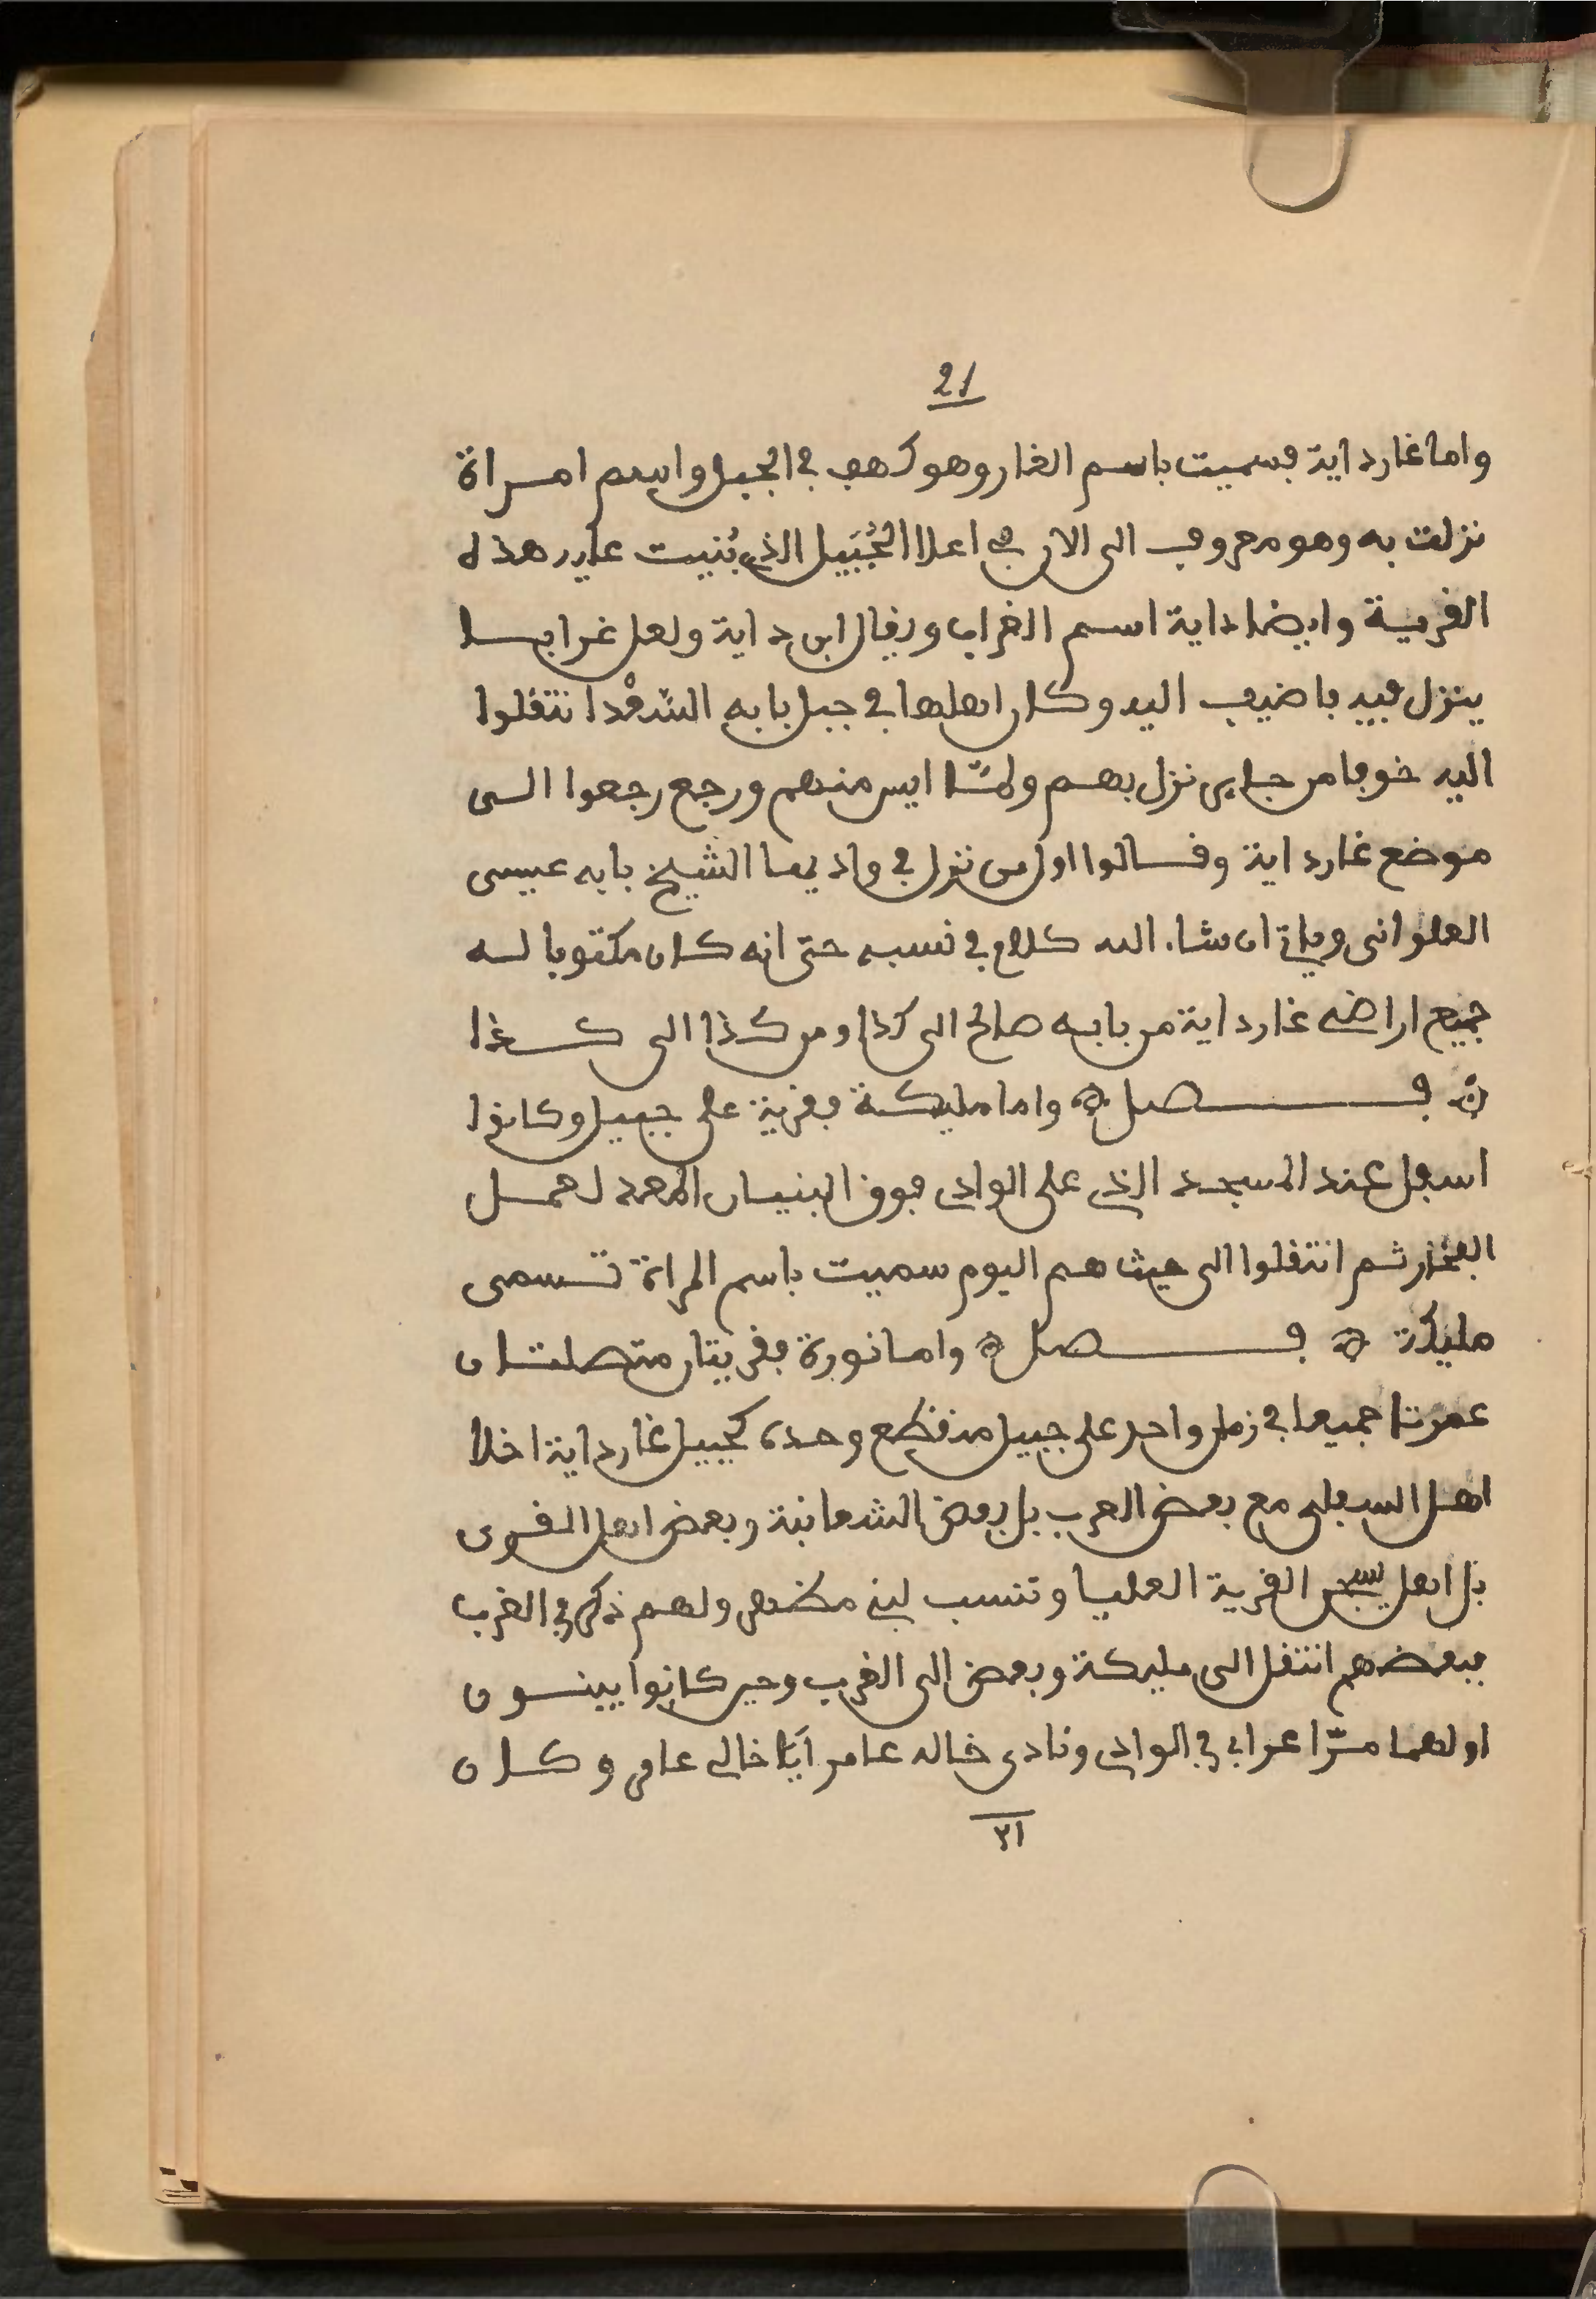 21
واما غارداية فسميت باسم الغار وهو كهف في الجبل واسم امراة
نزلت به وهو معروف الى الان في اعلا الجُبَيل الذي بُنيت عليه هذه
القرية وايضا داية اسم الغراب ويقال ابن داية ولعل غرابا
ينزل فيه باضيف اليه وكان اهلها في جبل بابه السّعْد انتقلوا
اليه خوفا من جابى نزل بهم ولمّا ايس منهم ورجع رجعوا الى
موضع غارداية وقالوا اول من نزل في واديها الشيخ بابه عيسى
العلوانى وياتى ان شاء الله كلام في نسبه حتى انه كان مكتوبا له
جميع اراضي غارداية من بابه صالح الى كذا ومن كذا الى كذا
فصل واما مليكة فقرية على جبيل وكانوا
اسفل عند المسجد الذي على الوادى فوق البنيان المعد لعمل
الفخار ثم انتقلوا الى حيث هم اليوم سميت باسم المراة تسمى
مليكة فصل واما نورة فقريتان متصلتان
عمرتا جميعا في زمان واحد على جبيل منقطع وحده كجبيل غارداية اخلا
اهل السفلى مع بعض العرب بل بعض الشعانبة وبعض اهل القرى
بل اهل يسجن القرية العليا وتنسب لبني مطهر ولهم ذكر في الغرب
فبعضهم انتقل الى مليكة وبعض الى الغرب وحين كانوا يبنون
اولهما مرّ اعرابي في الوادى ونادى خاله عامر ايَا خالي عامر وكان
٢١